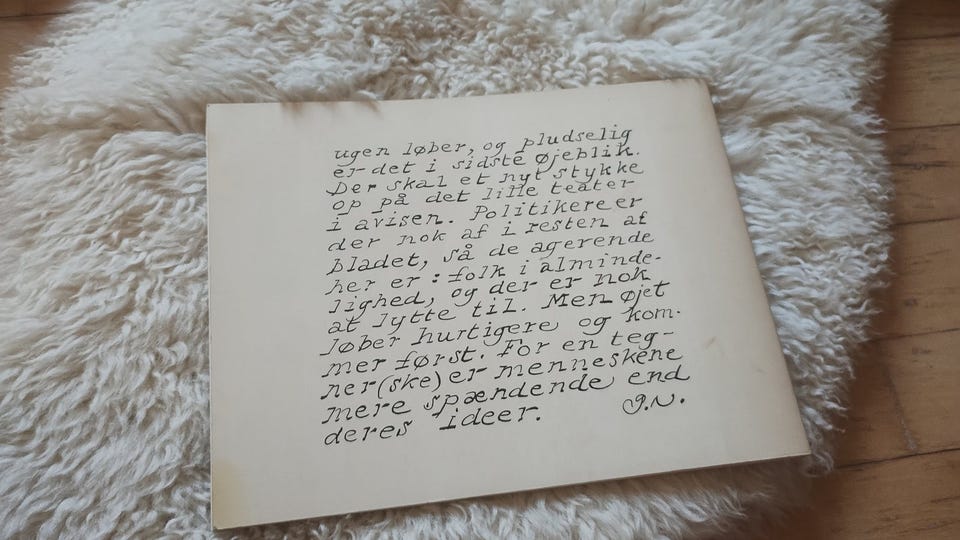 ugen løber, og pludselig
er det i sidste øjeblik.
Der skal et nyt stykke
op på det lille teater
i avisen. Politikere er
der nok af i resten af
bladet, så de agerende
her er : folk i alminde-
lighed, og der er nok
at lytte til. Men øjet
løber hurtigere og kom-
mer først. For en teg-
ner(ske) er menneskene
mere spændende end
deres ideer. I.N.